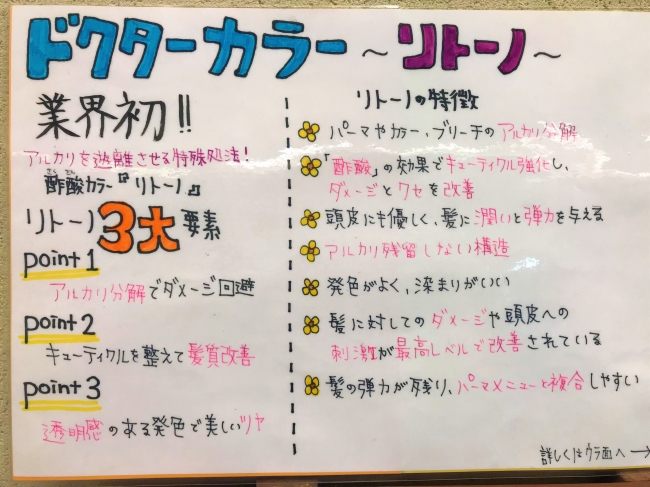 ドクターカラー ～リトーノ～
業界初!!
アルカリを遊離させる特殊処法!
さくさん
酢酸カラー『リトーノ』
リトーノ 3大 要素
point 1
アルカリ分解でダメージ回避
point 2
キューティクルを整えて髪質改善
point 3
透明感のある発色で美しいツヤ
リトーノの特徴
パーマやカラー、ブリーチのアルカリ分解
「酢酸」の効果でキューティクル強化し、
ダメージとクセを改善
頭皮にも優しく、髪に潤いと弾力を与える
アルカリ残留しない構造
発色がよく、染まりがいい
髪に対してのダメージや頭皮への
刺激が最高レベルで改善されている
髪の弾力が残り、パーマメニューと複合しやすい
詳しくはウラ面へ→